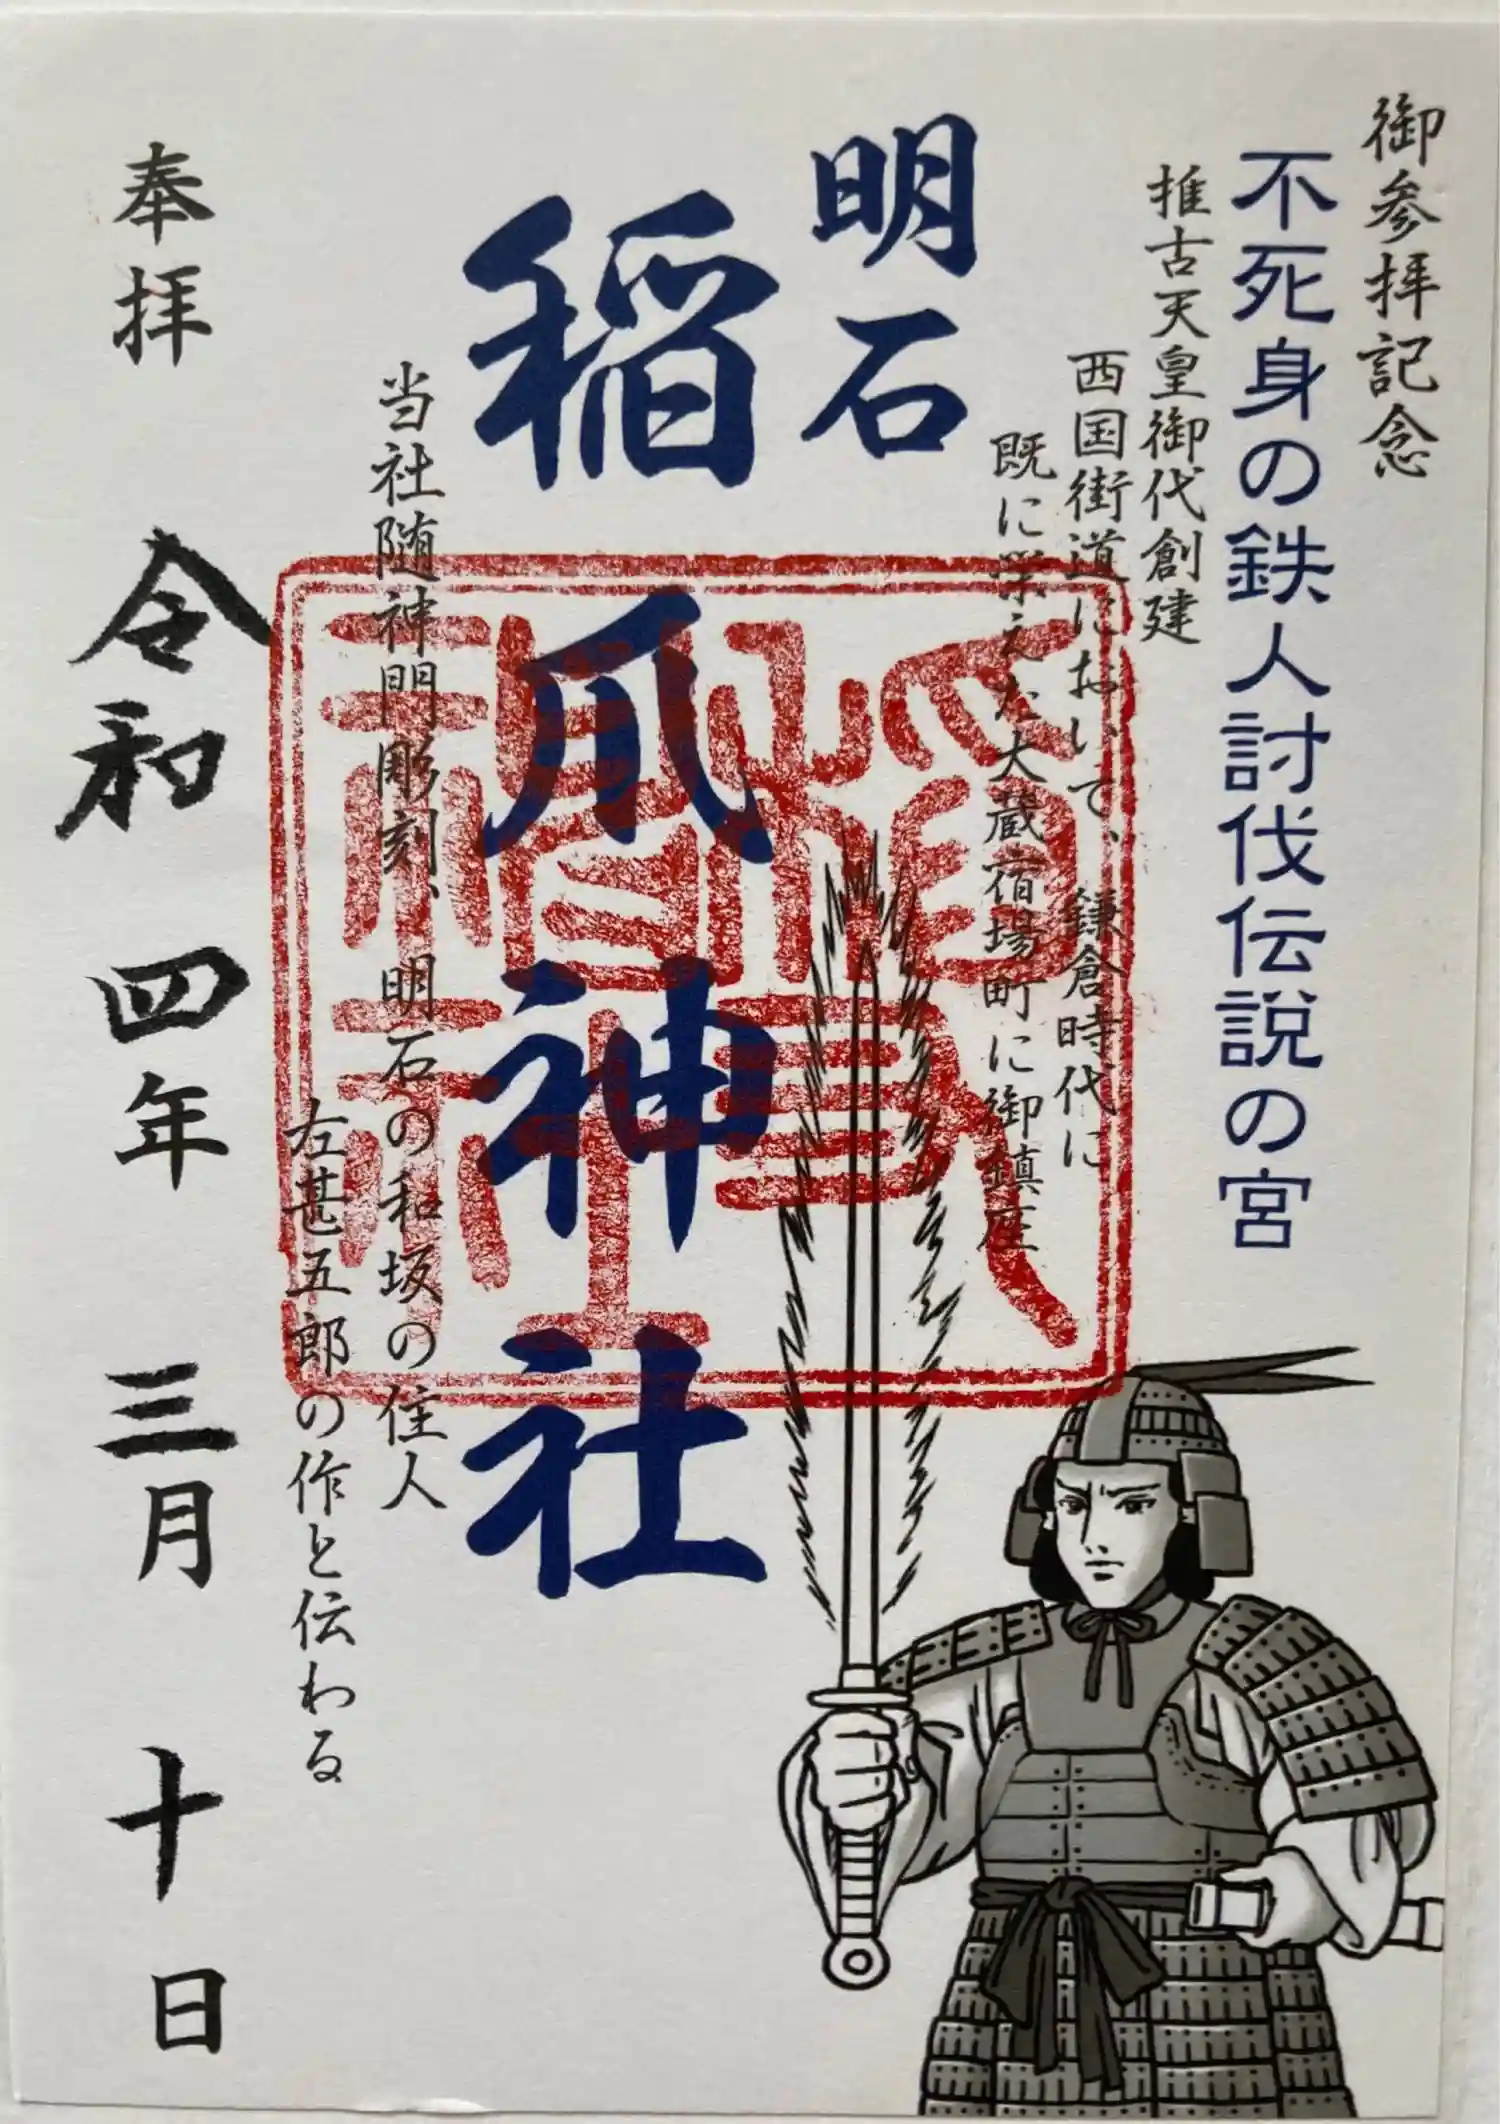 御参拝記念
不死身の鉄人討伐伝説の宮
推古天皇御代創建
西国街道において、鎌倉時代に
既に栄えた大蔵宿場町に御鎮座
明石
稲爪神社
当社随神門彫刻、明石の和坂の住人
左甚五郎の作と伝わる
奉拝
令和四年三月十日
稲爪神社